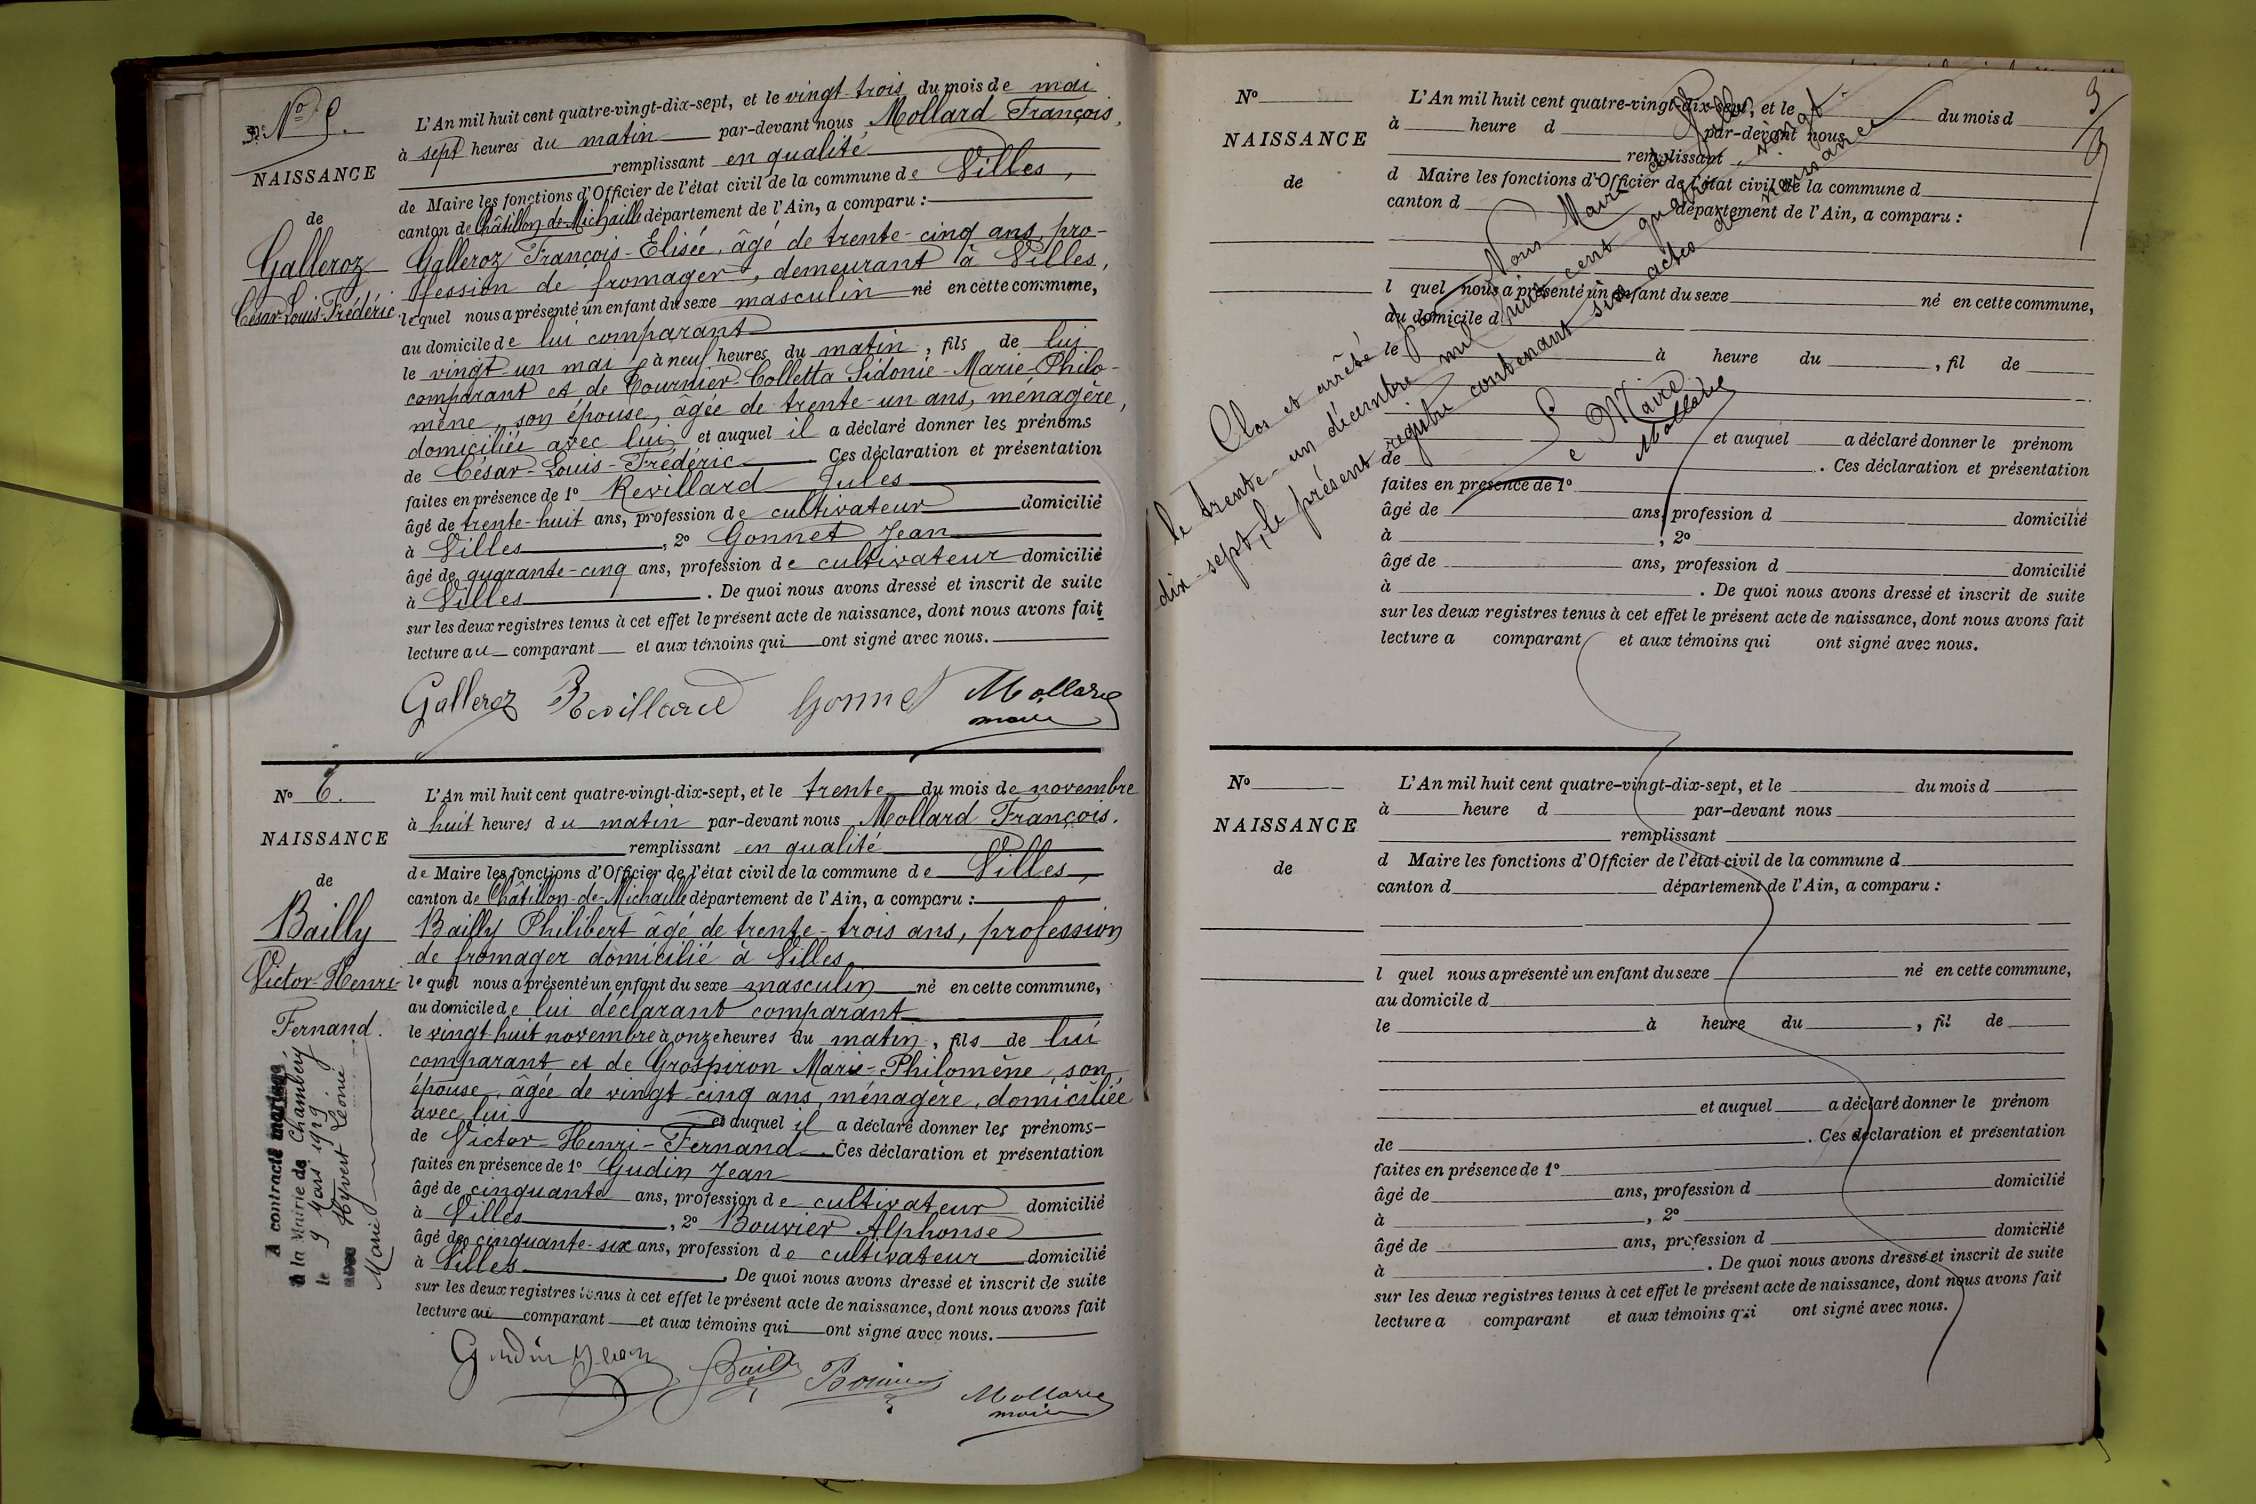 No 5.
NAISSANCE
de
Galleroz
César-Louis-Frédéric
L'An mil huit cent quatre-vingt-dix-sept, et le vingt-trois du mois de mai
à sept heures du matin par-devant nous Mollard François,
remplissant en qualité
de Maire les fonctions d'Officier de l'état civil de la commune de Villes,
canton de Châtillon-de-Michaille département de l'Ain, a comparu :
Galleroz François-Elisée, âgé de trente-cinq ans, pro-
fession de fromager, demeurant à Villes,
lequel nous a présenté un enfant du sexe masculin né en cette commune,
au domicile de lui comparant
le vingt-un mai à neuf heures du matin, fils de lui
comparant et de Tournier-Colletta Sidonie-Marie-Philo-
mène, son épouse, âgée de trente-un ans, ménagère,
domiciliée avec lui, et auquel il a déclaré donner les prénoms
de César-Louis-Frédéric Ces déclaration et présentation
faites en présence de 1º Revillard Jules
âgé de trente-huit ans, profession de cultivateur domicilié
à Villes, 2º Gonnet Jean
âgé de quarante-cinq ans, profession de cultivateur domicilié
à Villes. De quoi nous avons dressé et inscrit de suite
sur les deux registres tenus à cet effet le présent acte de naissance, dont nous avons fait
lecture au comparant et aux témoins qui ont signé avec nous.
Galleroz Revillard Gonnet Mollard
maire
No 6.
NAISSANCE
de
Bailly
Victor-Henri-
Fernand.
A contracté mariage
à la Mairie de Chambéry
le 9 Mars 1929
avec Hyvert Léonie
Marie
L'An mil huit cent quatre-vingt-dix-sept, et le trente du mois de novembre
à huit heures du matin par-devant nous Mollard François.
remplissant en qualité
de Maire les fonctions d'Officier de l'état civil de la commune de Villes,
canton de Châtillon-de-Michaille département de l'Ain, a comparu :
Bailly Philibert âgé de trente-trois ans, profession
de fromager domicilié à Villes
lequel nous a présenté un enfant du sexe masculin né en cette commune,
au domicile de lui déclarant comparant
le vingt-huit novembre à onze heures du matin, fils de lui
comparant et de Grospiron Marie-Philomène, son
épouse, âgée de vingt-cinq ans, ménagère, domiciliée
avec lui et auquel il a déclaré donner les prénoms
de Victor-Henri-Fernand. Ces déclaration et présentation
faites en présence de 1º Gudin Jean
âgé de cinquante ans, profession de cultivateur domicilié
à Villes, 2º Bouvier Alphonse
âgé de cinquante-six ans, profession de cultivateur domicilié
à Villes. De quoi nous avons dressé et inscrit de suite
sur les deux registres tenus à cet effet le présent acte de naissance, dont nous avons fait
lecture au comparant et aux témoins qui ont signé avec nous.
Gudin Jean Bailly Bouvier Mollard
maire
No
NAISSANCE
de
L'An mil huit cent quatre-vingt-dix-sept, et le du mois d
à heure d par-devant nous
remplissant
d Maire les fonctions d'Officier de l'état civil de la commune d
canton d département de l'Ain, a comparu :
l quel nous a présenté un enfant du sexe né en cette commune,
au domicile d
le à heure du , fil de
et auquel a déclaré donner le prénom
de . Ces déclaration et présentation
faites en présence de 1º
âgé de ans, profession d domicilié
à , 2º
âgé de ans, profession d domicilié
à . De quoi nous avons dressé et inscrit de suite
sur les deux registres tenus à cet effet le présent acte de naissance, dont nous avons fait
lecture a comparant et aux témoins qui ont signé avec nous.
Clos et arrêté par Nous Maire de Villes
le trente-un décembre mil huit cent quatre-vingt-
dix-sept, le présent registre contenant six actes de naissance
Le Maire
Mollard
No
NAISSANCE
de
L'An mil huit cent quatre-vingt-dix-sept, et le du mois d
à heure d par-devant nous
remplissant
d Maire les fonctions d'Officier de l'état civil de la commune d
canton d département de l'Ain, a comparu :
l quel nous a présenté un enfant du sexe né en cette commune,
au domicile d
le à heure du , fil de
et auquel a déclaré donner le prénom
de . Ces déclaration et présentation
faites en présence de 1º
âgé de ans, profession d domicilié
à , 2º
âgé de ans, profession d domicilié
à . De quoi nous avons dressé et inscrit de suite
sur les deux registres tenus à cet effet le présent acte de naissance, dont nous avons fait
lecture a comparant et aux témoins qui ont signé avec nous.